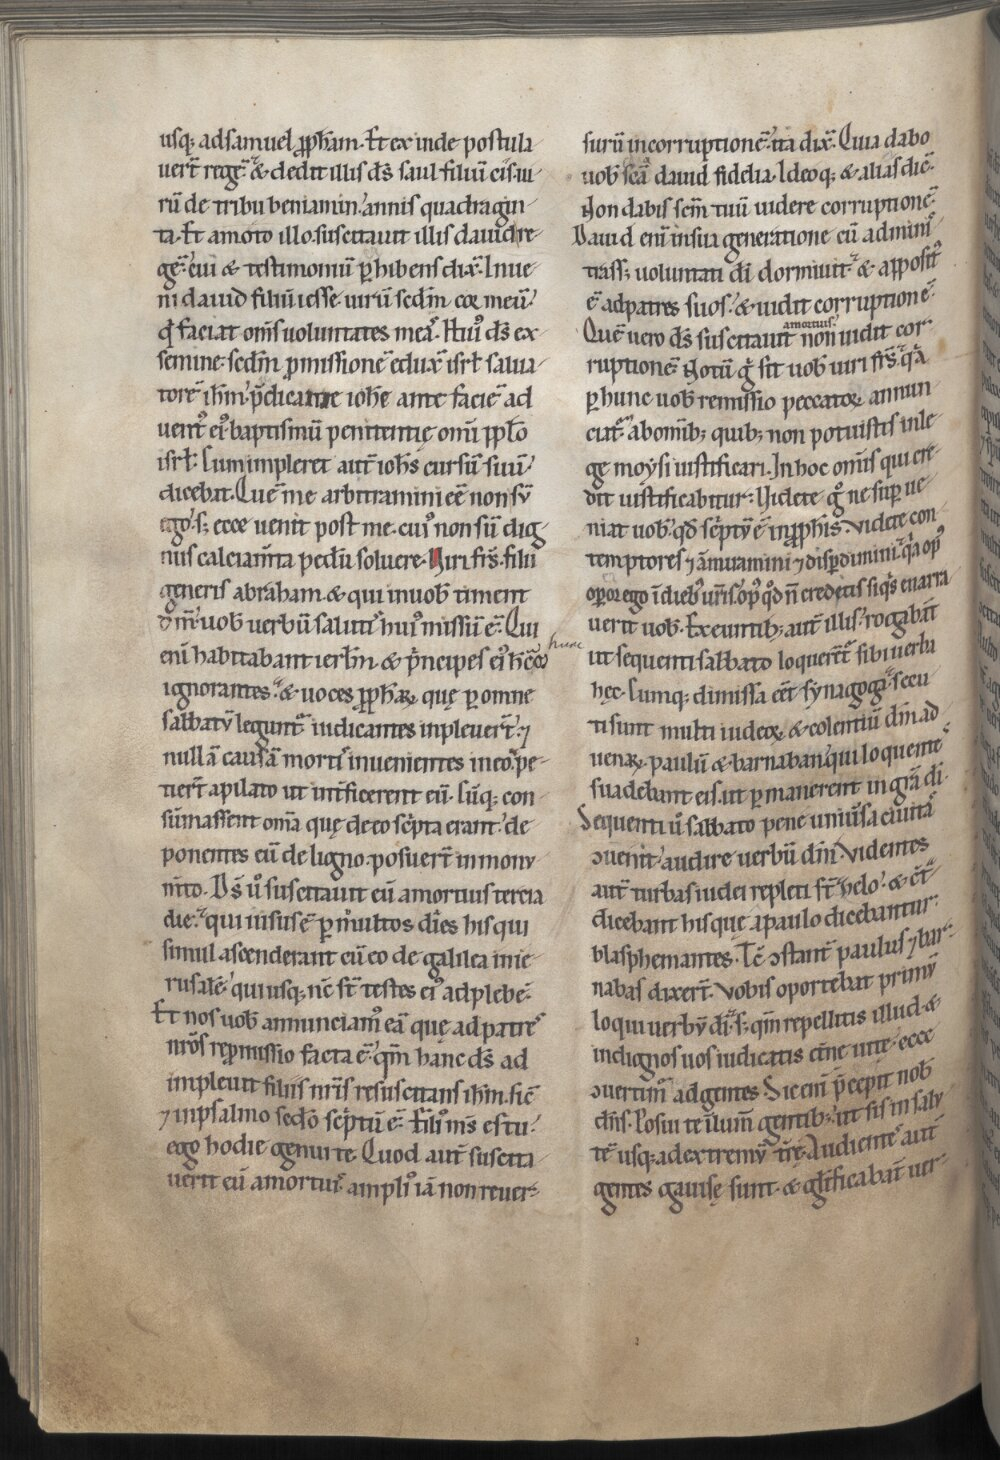 usq; ad samuel ꝓph̄am. Et ex inde postula
uer̄t regē. & dedit illis d̄s saul filiū cis. ui
rū de tribu beniamin. annis quadragin
ta. Et amoto illo. suscitauit illis dauid re
gē. cui & testimoniū ꝑhibens dix̄. Inue
ni dauid filiū iesse. uirū sc̄dm cor meū.
q̄ faciat om̄s uoluntates meas. Hui᷒ d̄s ex
semine. sc̄dm ꝓmissionē edux̄ isrl̄ salua
torē ih̄m. p̄dicante ioh̄e ante faciē ad
uent᷒ ei᷒ baptismū penitentię om̄i ꝓplo
isrl̄. Cum impleret aut̄ ioh̄s cursū suū.
dicebat. Quē me arbitramini eē non sū
ego. s; ecce uenit post me. cui᷒ non sū dig
nus calciam̄ta pedū soluere. Uiri fr̄s. filii
generis abraham. & qui in uob̄ timent
dm̄. uob̄ uerbū salutis hui᷒ missū ē. Qui
eni habitabant ierl̄m & p̄ncipes ei᷒ hc̄
hunc
ignorantes. & uoces ꝓph̄aꝝ quę ꝑ omne
sabbatū leguntr̄ iudicantes inpleuer̄t. ⁊
nullā causā mortis inuenientes in eo. pe
tier̄t a pilato ut int̄ficerent eū. Cūq; con
sūmassent om̄a quę de eo sc̄pta erant. de
ponentes eū de ligno. posuer̄t in monu
m̄to. D̄s u᷒ suscitauit eū a mortuis tercia
die. qui uisus ē ꝑ multos dies his qui
simul ascenderant cū eo de galilea in ie
rusalē. qui usq; nc̄ st̄ testes ei᷒ ad plebē.
Et nos uob̄ annunciam᷒ eā quę ad patres
nr̄os repmissio facta ē. qm̄ hanc d̄s ad
impleuit filiis nr̄is resuscitans ih̄m. sic̄
⁊ in psalmo sc̄do sc̄ptū ē. Fili᷒ ms̄ es tu.
ego hodie genui te. Quod aut̄ suscita
uerit eū a mortuis ampli᷒ iā non reuer
surū in corruptionē. ita dix̄. Quia dabo
uob̄ sc̄ā dauid fidelia. Ideoq; & alias dic̄.
Non dabis sc̄m tuū uidere corruptionē.
Dauid eni in sua generatione cū adminis
trass; uoluntati d̄i dormiuit. & apposit᷒
ē ad patres suos. & uidit corruptionē.
Quē uero d̄s suscitauit a mortuis. non uidit cor
ruptionē. Notū g̊ sit uob̄ uiri fr̄s. q̄a
ꝑ hunc uob̄ remissio peccatoꝝ annun
ciatr̄. ab omib; quib; non potuistis in le
ge moysi iustificari. In hoc om̄is qui cre
dit iustificabitur. Uidete g̊ ne supue
niat uob̄. qd̄ sc̄ptū ē in ꝓph̄is. Videte con
temptores ⁊ āmiramini ⁊ dispꝑdimini. q̄a op᷒
oꝑor ego ī dieb᷒ ur̄is. op᷒ qd̄ n̄ credetis siq̄s enarra
uerit uob̄. Exeuntib; aut̄ illis. rogabāt
ut sequenti sabbato loquerētr̄ sibi uerba
hęc. Cumq; dimissa eēt synagoga. secu
ti sunt multi iudeoꝝ & colentiū dm̄ ad
uenaꝝ. paulū & barnaban. qui loquentes
suadebant eis. ut ꝑmanerent in gr̄ā d̄i.
Sequenti ū sabbato pene uniūsa ciuitas
ɔuenit. audire uerbū dn̄i. Videntes
aut̄ turbas iudei repleti st̄ zelo. & c̄t
dicebant his quę a paulo dicebantur.
blasphemantes. Tc̄ ɔstant̄ paulus ⁊ bar
nabas dixer̄t. Vobis oportebat primū
loqui uerbū d̄i. s; qm̄ repellitis illud. &
indignos uos iudicatis et̄ne uite. ecce
ɔuertim᷒ ad gentes. Sic eni p̄cepit nob̄
dn̄s. Posui te ī lum̄ gentib;. ut sis in salu
tē usq; ad extremū tr̄ę. Audientes aut̄
gentes gauisę sunt. & gl̄ificabāt uer